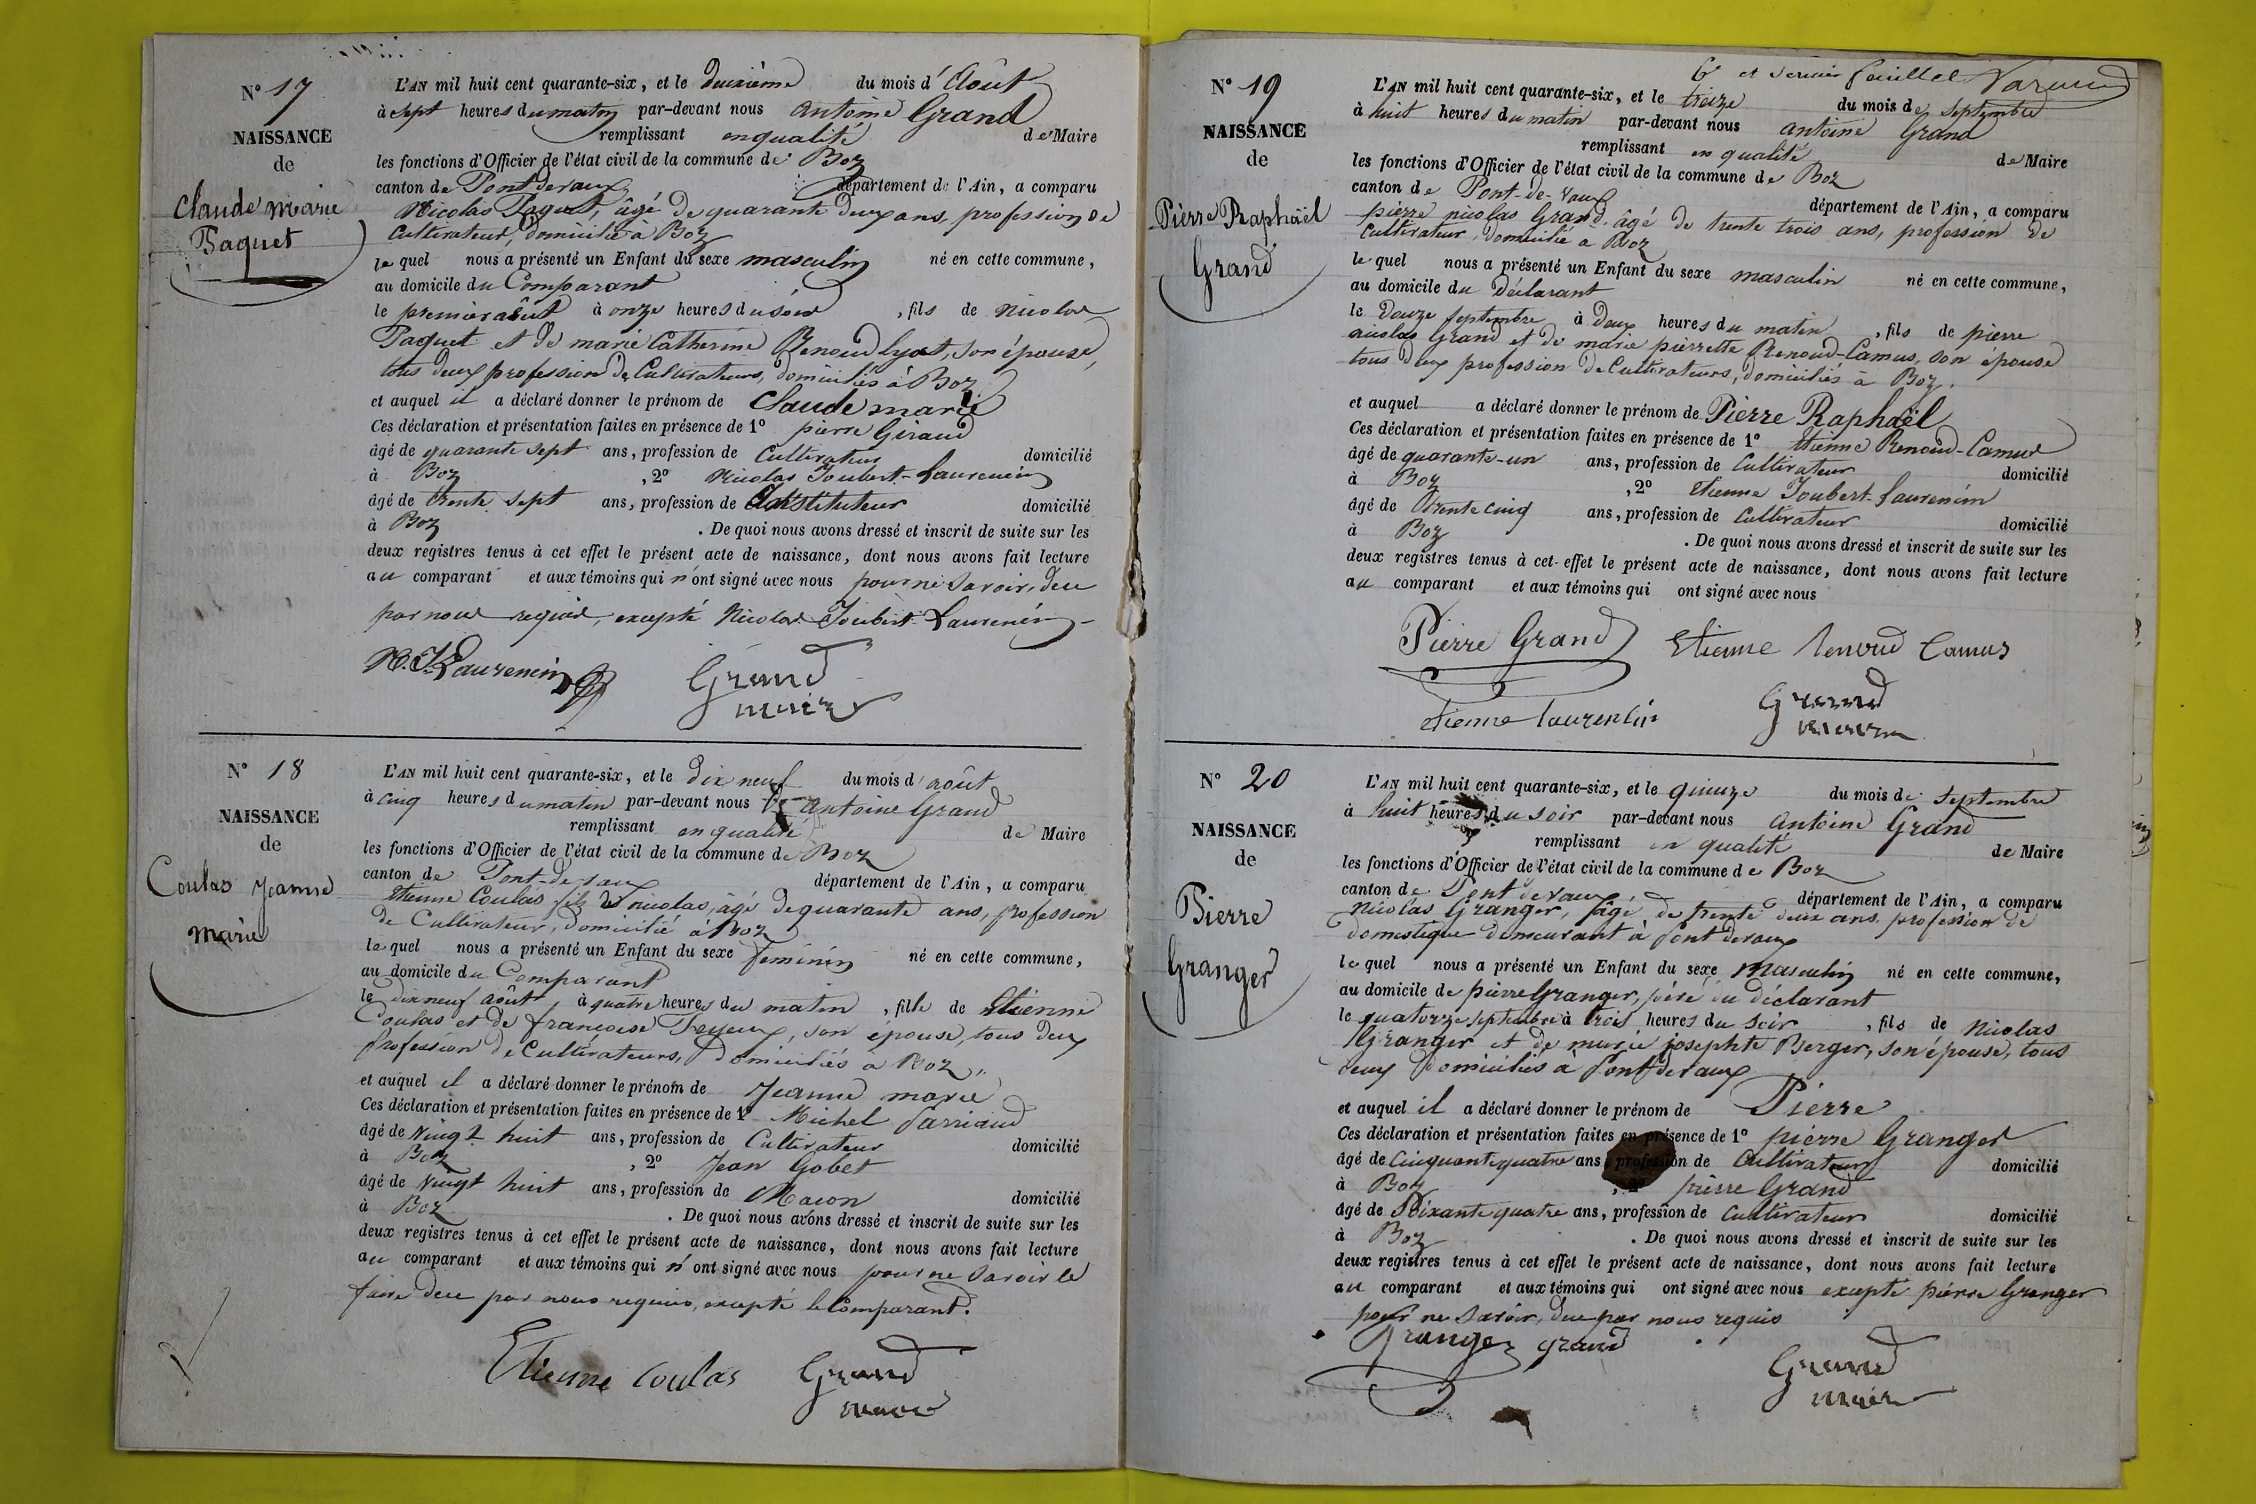 N° 17
NAISSANCE
de
Claude Marie
Paquet
L'AN mil huit cent quarante-six, et le deuxième du mois d'Août
à sept heures du matin par-devant nous antoine Grand
remplissant en qualité de Maire
les fonctions d'Officier de l'état civil de la commune de Boz
canton de Pontdevaux département de l'Ain, a comparu
Nicolas Paquet, âgé de quarante deux ans, profession de
Cultivateur, domicilié a Boz
le quel nous a présenté un Enfant du sexe masculin né en cette commune,
au domicile du Comparant
le premier août à onze heures du soir, fils de Nicolas
Paquet et de marie Catherine Renoud lyat, son épouse,
tous deux profession de Cultivateurs, domiciliés à Boz
et auquel il a déclaré donner le prénom de Claude marie
Ces déclaration et présentation faites en présence de 1° pierre Giraud
âgé de quarante sept ans, profession de Cultivateur domicilié
à Boz, 2° Nicolas Joubert-Laurencin
âgé de trente sept ans, profession de Instituteur domicilié
à Boz. De quoi nous avons dressé et inscrit de suite sur les
deux registres tenus à cet effet le présent acte de naissance, dont nous avons fait lecture
au comparant et aux témoins qui n'ont signé avec nous pour ne savoir, deu
par nous requis, excepté Nicolas Joubert Laurencin
N. J. Laurencin Grand
maire
N° 18
NAISSANCE
de
Coulas Jeanne
Marie
L'AN mil huit cent quarante-six, et le dix neuf du mois d'août
à cinq heures du matin par-devant nous antoine Grand
remplissant en qualité de Maire
les fonctions d'Officier de l'état civil de la commune de Boz
canton de Pont-de-vaux département de l'Ain, a comparu
Etienne Coulas fils de nicolas, âgé de quarante ans, profession
de Cultivateur, domicilié a Boz
le quel nous a présenté un Enfant du sexe feminin né en cette commune,
au domicile du Comparant
le dix neuf août, à quatre heures du matin, fille de Etienne
Coulas et de françoise, son épouse, tous deux
profession de Cultivateurs, domiciliés à Boz
et auquel il a déclaré donner le prénom de Jeanne marie
Ces déclaration et présentation faites en présence de 1° Michel
âgé de vingt huit ans, profession de Cultivateur domicilié
à Boz, 2° Jean Gobet
âgé de vingt huit ans, profession de Macon domicilié
à Boz. De quoi nous avons dressé et inscrit de suite sur les
deux registres tenus à cet effet le présent acte de naissance, dont nous avons fait lecture
au comparant et aux témoins qui n'ont signé avec nous pour ne savoir le
faire deu par nous requis, excepté le Comparant.
Etienne Coulas Grand
maire
6e et dernier feuillet
N° 19
NAISSANCE
de
Pierre Raphaël
Grand
L'AN mil huit cent quarante-six, et le treize du mois de septembre
à huit heures du matin par-devant nous antoine Grand
remplissant en qualité de Maire
les fonctions d'Officier de l'état civil de la commune de Boz
canton de Pont-de-vaux département de l'Ain, a comparu
pierre nicolas Grand, âgé de trente trois ans, profession de
cultivateur, domicilié a Boz
le quel nous a présenté un Enfant du sexe masculin né en cette commune,
au domicile du déclarant
le douze septembre à deux heures du matin, fils de pierre
nicolas Grand et de marie pierrette Renoud-Camus, son épouse
tous deux profession de Cultivateurs, domiciliés à Boz.
et auquel a déclaré donner le prénom de Pierre Raphaël
Ces déclaration et présentation faites en présence de 1° Etienne Renoud-Camus
âgé de quarante-un ans, profession de Cultivateur domicilié
à Boz, 2° Etienne Joubert-Laurencin
âgé de trente cinq ans, profession de Cultivateur domicilié
à Boz. De quoi nous avons dressé et inscrit de suite sur les
deux registres tenus à cet effet le présent acte de naissance, dont nous avons fait lecture
au comparant et aux témoins qui ont signé avec nous
Pierre Grand Etienne Renoud Camus
Etienne Laurencin Grand
maire
N° 20
NAISSANCE
de
Pierre
Granger
L'AN mil huit cent quarante-six, et le quinze du mois de septembre
à huit heures du soir par-devant nous antoine Grand
remplissant en qualité de Maire
les fonctions d'Officier de l'état civil de la commune de Boz
canton de Pont de vaux département de l'Ain, a comparu
Nicolas Granger, âgé de trente deux ans, profession de
domestique demeurant à Pont devaux
le quel nous a présenté un Enfant du sexe masculin né en cette commune,
au domicile de pierre Granger, père du déclarant
le quatorze septembre à trois heures du soir, fils de Nicolas
Granger et de marie josephte Berger, son épouse, tous
deux domiciliés à Pontdevaux
et auquel il a déclaré donner le prénom de Pierre
Ces déclaration et présentation faites en présence de 1° pierre Granger
âgé de cinquante quatre ans, profession de Cultivateur domicilié
à Boz, 2° pierre Grand
âgé de soixante quatre ans, profession de cultivateur domicilié
à Boz. De quoi nous avons dressé et inscrit de suite sur les
deux registres tenus à cet effet le présent acte de naissance, dont nous avons fait lecture
au comparant et aux témoins qui ont signé avec nous excepté pierre Granger
pour ne savoir, deu par nous requis
Granger grand Grand
maire